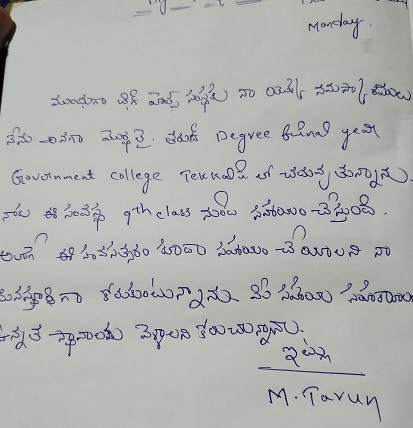 Monday.
ముందుగా హెల్ప్ సంస్థకు నా యొక్క నమస్కారములు
నేను అనగా తరుణ్ Degree ఫైనల్ year
Government college Tekkali లో చదువుతున్నాను.
నాకు ఈ సంస్థ 9th class నుండి సహాయం చేస్తుంది.
అలాగే ఈ సంవత్సరం కూడా సహాయం చేయాలని నా
మనస్ఫూర్తిగా కోరుకుంటున్నాను. మీ సహాయ
ఉన్నత స్థానాలకు వెళ్ళాలని కోరుచున్నాను.
ఇట్లు
M. Tarun